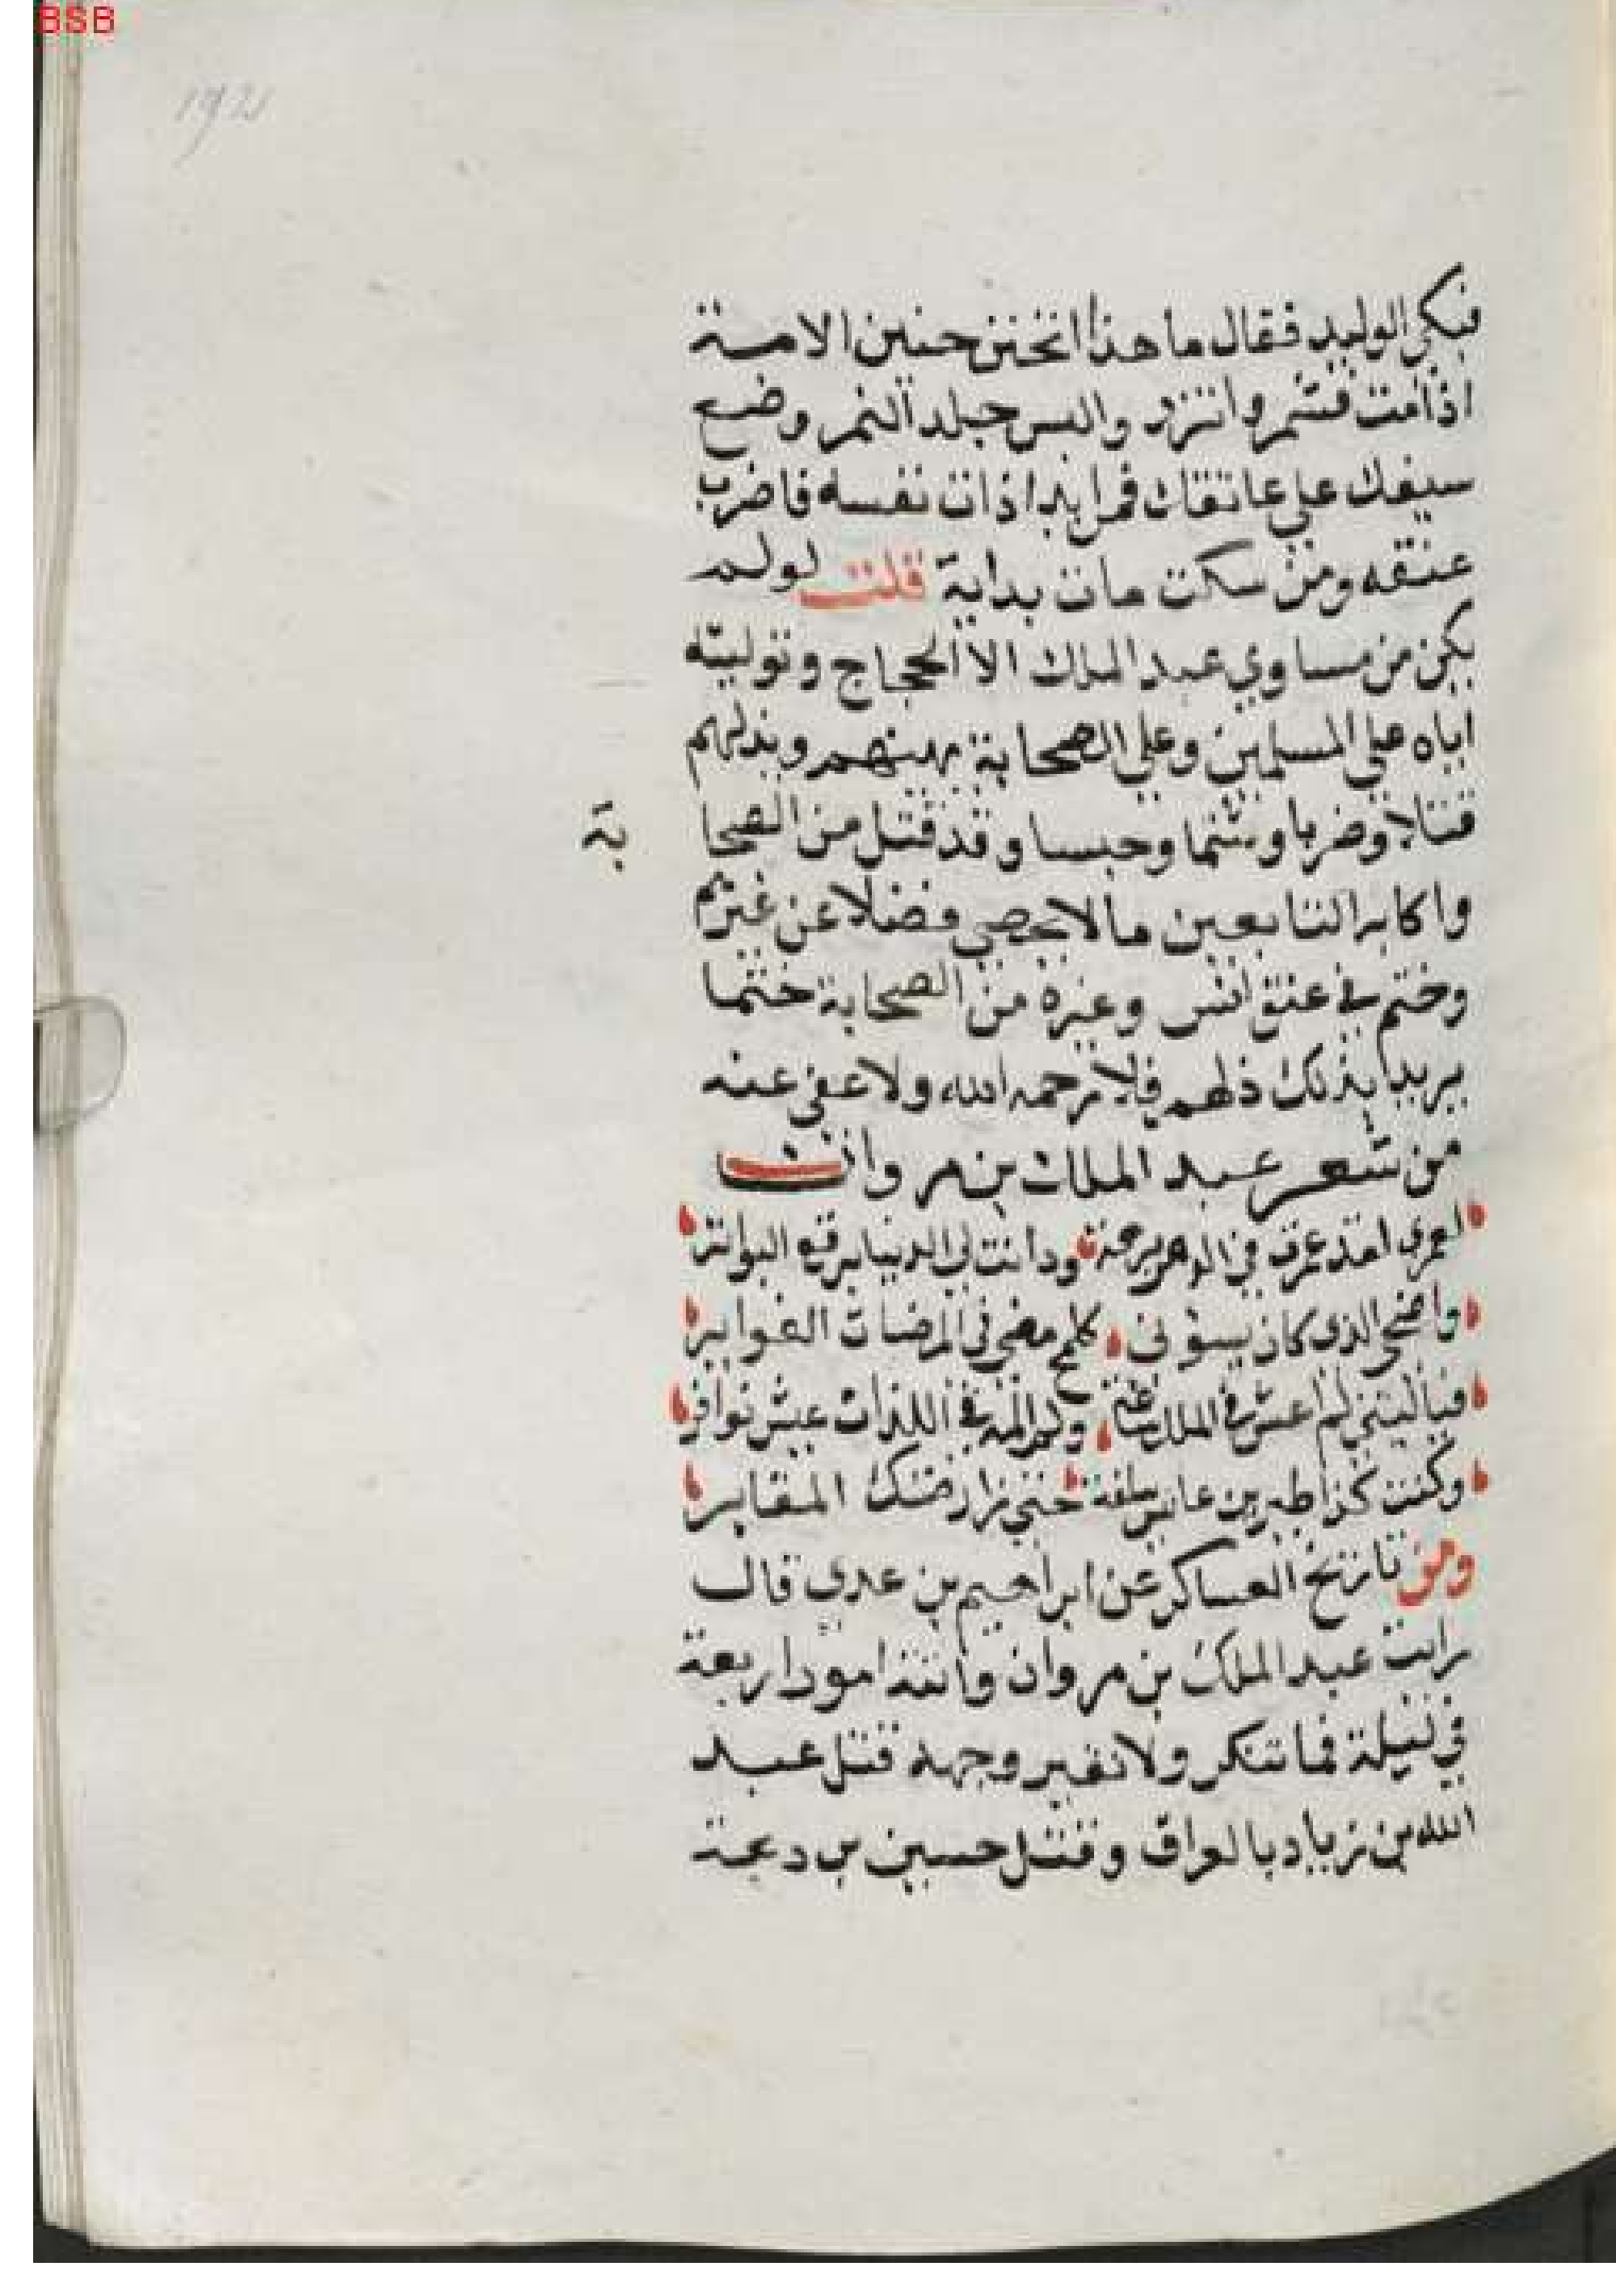 BSB
192
فبكى الوليد فقال ما هذا اتحنن حنين الامة
اذا مت فشمر واتزر والبس جلد النمر وضع
سيفك على عاتقك فمن ابدا ذات نفسه فاضرب
عنقه ومن سكت مات بدايه قلت لو لم
يكن من مساوي عبد الملك الا الحجاج وتوليته
اياه على المسلمين وعلى الصحابة يهينهم ويذلهم
قتلا وضربا وشتما وحبسا وقد قتل من الصحا بة
واكابر التابعين ما لا يحصى فضلا عن غيرهم
وختم في عنق انس وغيره من الصحابة ختما
يريد بذلك ذلهم فلا رحمه الله ولا عفى عنه
من شعر عبد الملك بن مروان
لعمري لقد عمرت في الدهر برهة ودانت لي الدنيا بوقع البواتر
واضحى الذي كان يسوني كلمح مضى في المزمنات الغوابر
فيا ليتني لم اعن في الملك ساعة ولم اله في اللذات عيش نوافر
وكنت كذا طمرين عاش ببلغة حتى زار ضنك المقابر
ومن تاريخ العساكر عن ابراهيم بن عدي قال
رايت عبد الملك بن مروان واتته امور اربعة
في ليلة فما تنكر ولا تغير وجهه قتل عبيد
الله بن زياد بالعراق وقتل حسين بن دعجة